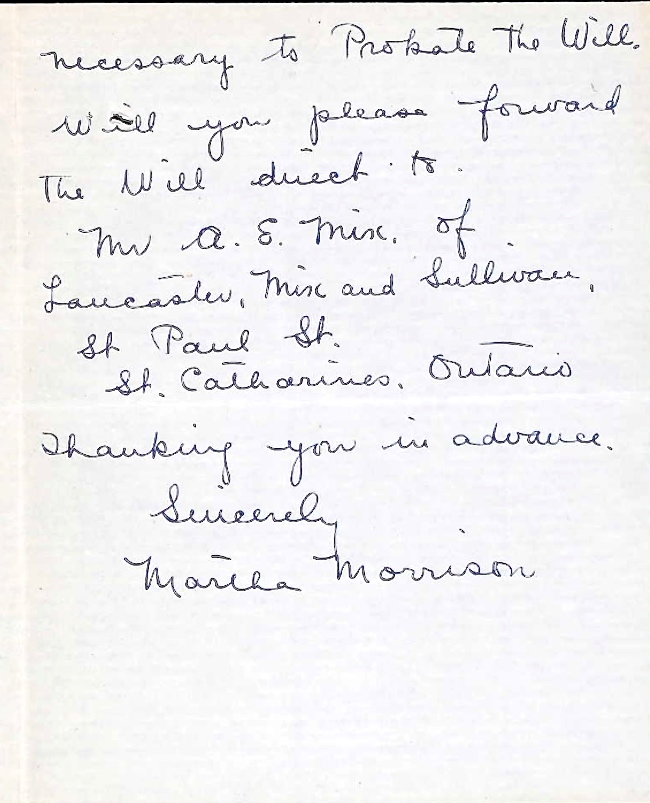 necessary to Probate The Will.
Will you please forward
The Will direct to.
Mr A. E. Mix. of
Lancaster, Mix and Sullivan,
St Paul St.
St. Catharines. Ontario
Thanking you in advance.
Sincerely
Martha Morrison